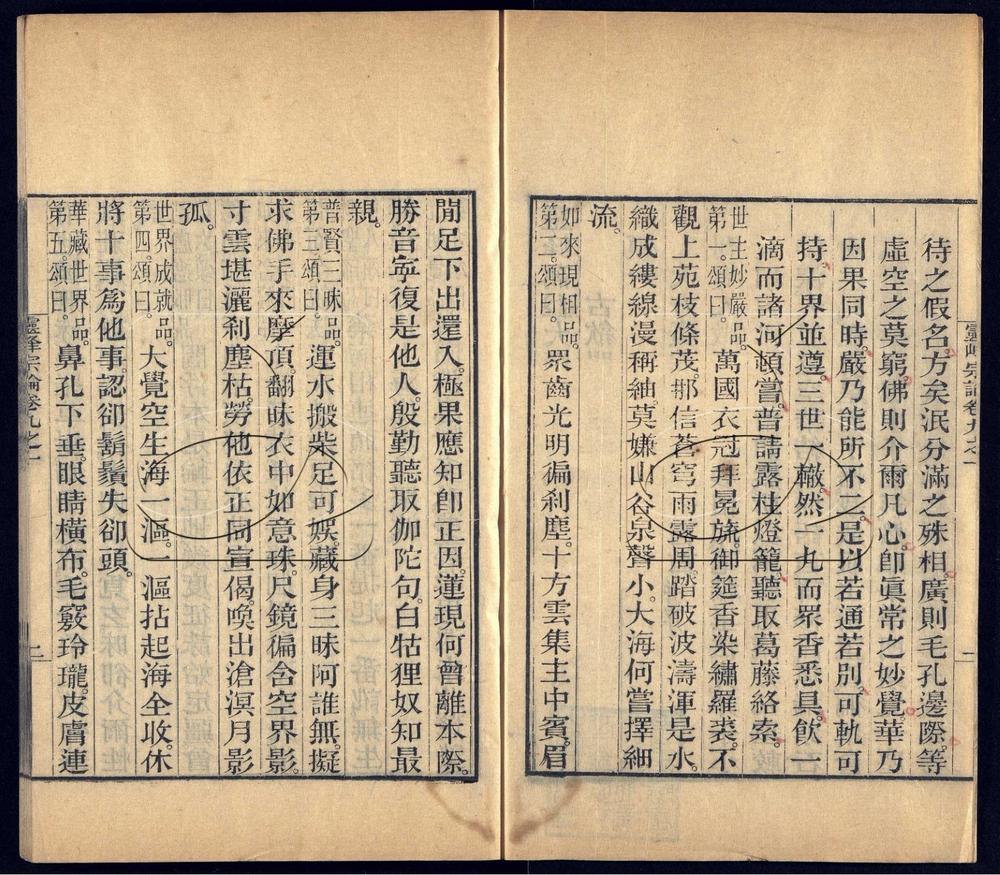 靈峰宗論卷九之一
一
待之假名。方矣泯分滿之殊相。廣則毛孔邊際。等
虛空之莫窮。佛則介爾凡心。卽眞常之妙覺。華乃
因果同時。嚴乃能所不二。是以若通若別。可軌可
持。十界並遵。三世一轍。然一丸而眾香悉具。飲一
滴而諸河頓嘗。普請露柱燈籠。聽取葛藤絡索。
世主妙嚴品。第一。頌曰。萬國衣冠拜冕旒。御筵香染繡羅裘。不
觀上苑枝條茂。那信蒼穹雨露周。踏破波濤渾是水。
織成縷線漫稱紬。莫嫌山谷泉聲小。大海何嘗擇細
流。
如來現相品。第二。頌曰。眾齒光明徧剎塵。十方雲集主中賓。眉
閒足下出還入。極果應知卽正因。蓮現何曾離本際。
勝音寧復是他人。殷勤聽取伽陀句。白牯狸奴知最
親。
普賢三昧品。第三。頌曰。運水搬柴足可娛。藏身三昧阿誰無。擬
求佛手來摩頂。翻昧衣中如意珠。尺鏡徧含空界影。
寸雲堪灑剎塵枯。勞他依正同宣偈。喚出滄溟月影
孤。
世界成就品。第四。頌曰。大覺空生海一漚。一漚拈起海全收。休
將十事爲他事。認卻鬍鬚失卻頭。
華藏世界品。第五。頌曰。鼻孔下垂。眼睛橫布。毛竅玲瓏。皮膚連
靈峰宗論卷九之一
二